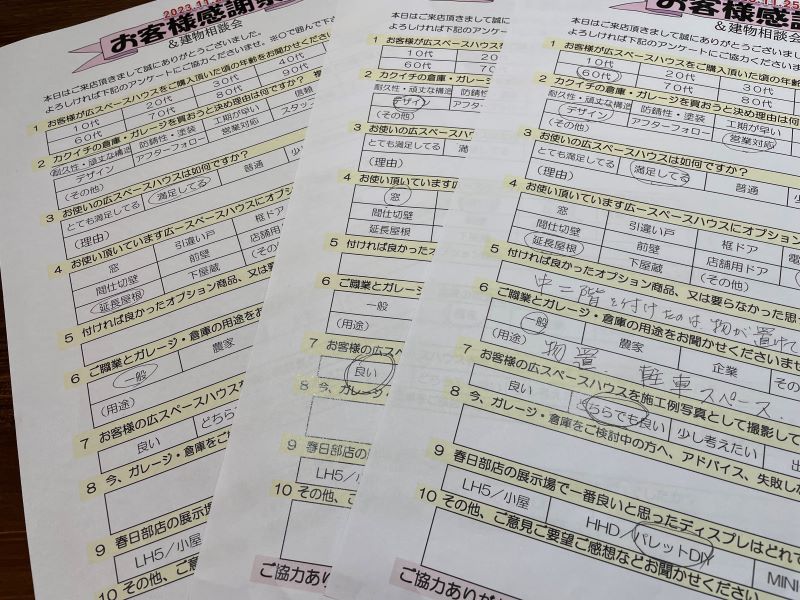 2023.11.25
お客様感謝祭
&建物相談会
本日はご来店頂きまして誠にありがとうございました。
よろしければ下記のアンケートにご協力くださいませ。※○で囲んで下さ
1 お客様が広スペースハウスをご購入頂いた頃の年齢をお聞かせください
10代 20代 30代 40代
60代 70代 80代 90代
2 カクイチの倉庫・ガレージを買おうと決め理由は何ですか?
耐久性・頑丈な構造 防錆性・塗装 工期が早い 信頼
デザイン アフターフォロー 営業対応 スタッフ
(その他)
3 お使いの広スペースハウスは如何ですか?
とても満足してる 満足してる 普通 少し
(理由)
4 お使い頂いています広ースペースハウスにオプション
窓 引違い戸 框ドア
間仕切壁 前壁 店舗用
延長屋根 下屋蔵 (その
5 付ければ良かったオプション商品、又は要
6 ご職業とガレージ・倉庫の用途をお
一般 農家
(用途)
7 お客様の広スペースハウスを
良い どちら
8 今、ガレージ・倉庫をご
9 春日部店の展示場
LH5/小屋
10 その他、ご意
本日はご来店頂きまして誠に
よろしければ下記のアンケート
1 お客様が広スペースハウスを
10代 20
60代 70
2 カクイチの倉庫・ガレージ
耐久性・頑丈な構造 防錆性
デザイン アフタ
(その他)
3 お使いの広スペースハ
とても満足してる 満
(理由)
4 お使い頂いています
窓
間仕切壁
延長屋根
5 付ければ良かったオ
6 ご職業とガレージ
一般
(用途)
7 お客様の広スペ
良い
8 今、ガレージ
9 春日部店の
LH5/
10 その他、ご
ご協力あり
お客様感謝
&建物相談会
本日はご来店頂きまして誠にありがとうございまし
よろしければ下記のアンケートにご協力ください
1 お客様が広スペースハウスをご購入頂いた頃の年
10代 20代 30代
60代 70代 80代
2 カクイチの倉庫・ガレージを買おうと決め理由は何
耐久性・頑丈な構造 防錆性・塗装 工期が早い
デザイン アフターフォロー 営業対応
(その他)
3 お使いの広スペースハウスは如何ですか?
とても満足してる 満足してる 普通 少
(理由)
4 お使い頂いています広ースペースハウスにオプション
窓 引違い戸 框ドア
間仕切壁 前壁 店舗用ドア 電
延長屋根 下屋蔵 (その他)
5 付ければ良かったオプション商品、又は要らなかった思っ
中二階を付けたのは、物が置けて
6 ご職業とガレージ・倉庫の用途をお聞かせくださいませ
一般 農家 企業 その
(用途) 物置、軽車スペース.
7 お客様の広スペースハウスを施工例写真として撮影して
良い どちらでも良い 少し考えたい 出
8 今、ガレージ・倉庫をご検討中の方へ、アドバイス、失敗し
9 春日部店の展示場で一番良いと思ったディスプレはどれで
LH5/小屋 HHD/ パレットDIY MINI
10 その他、ご意見ご要望ご感想などお聞かせください
ご協力ありが